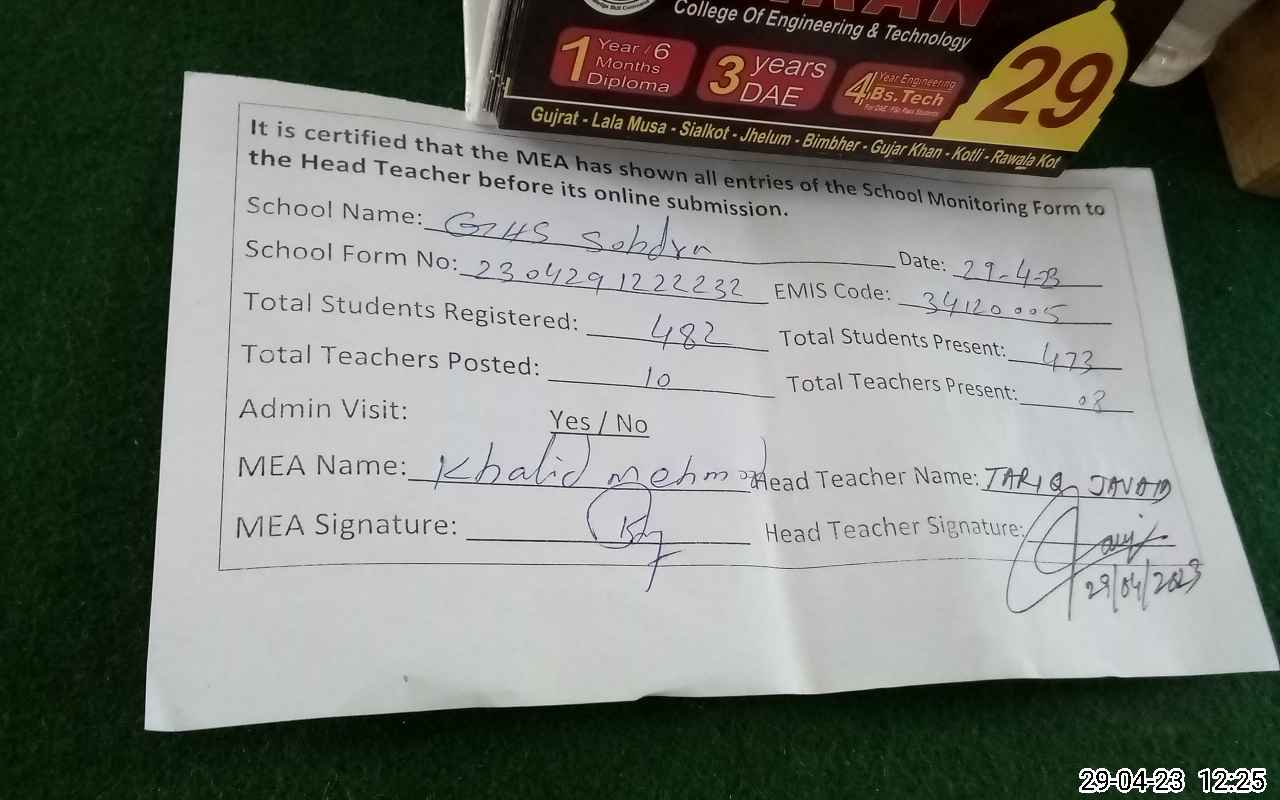 College Of Engineering & Technology
1 Year / 6 Months Diploma
3 years DAE
4 Year Engineering Bs.Tech
29
Gujrat - Lala Musa - Sialkot - Jhelum - Bimbher - Gujar Khan - Kotli - Rawala Kot
It is certified that the MEA has shown all entries of the School Monitoring Form to
the Head Teacher before its online submission.
School Name: GHS
Date: 29-4-23
School Form No: 2304291222232 EMIS Code: 34120005
Total Students Registered: 482 Total Students Present: 473
Total Teachers Posted: 10 Total Teachers Present: 08
Admin Visit: Yes / No
MEA Name: Khalid Mehmood Head Teacher Name: TARIQ JAVAID
MEA Signature: Head Teacher Signature:
29/04/2023
29-04-23 12:25